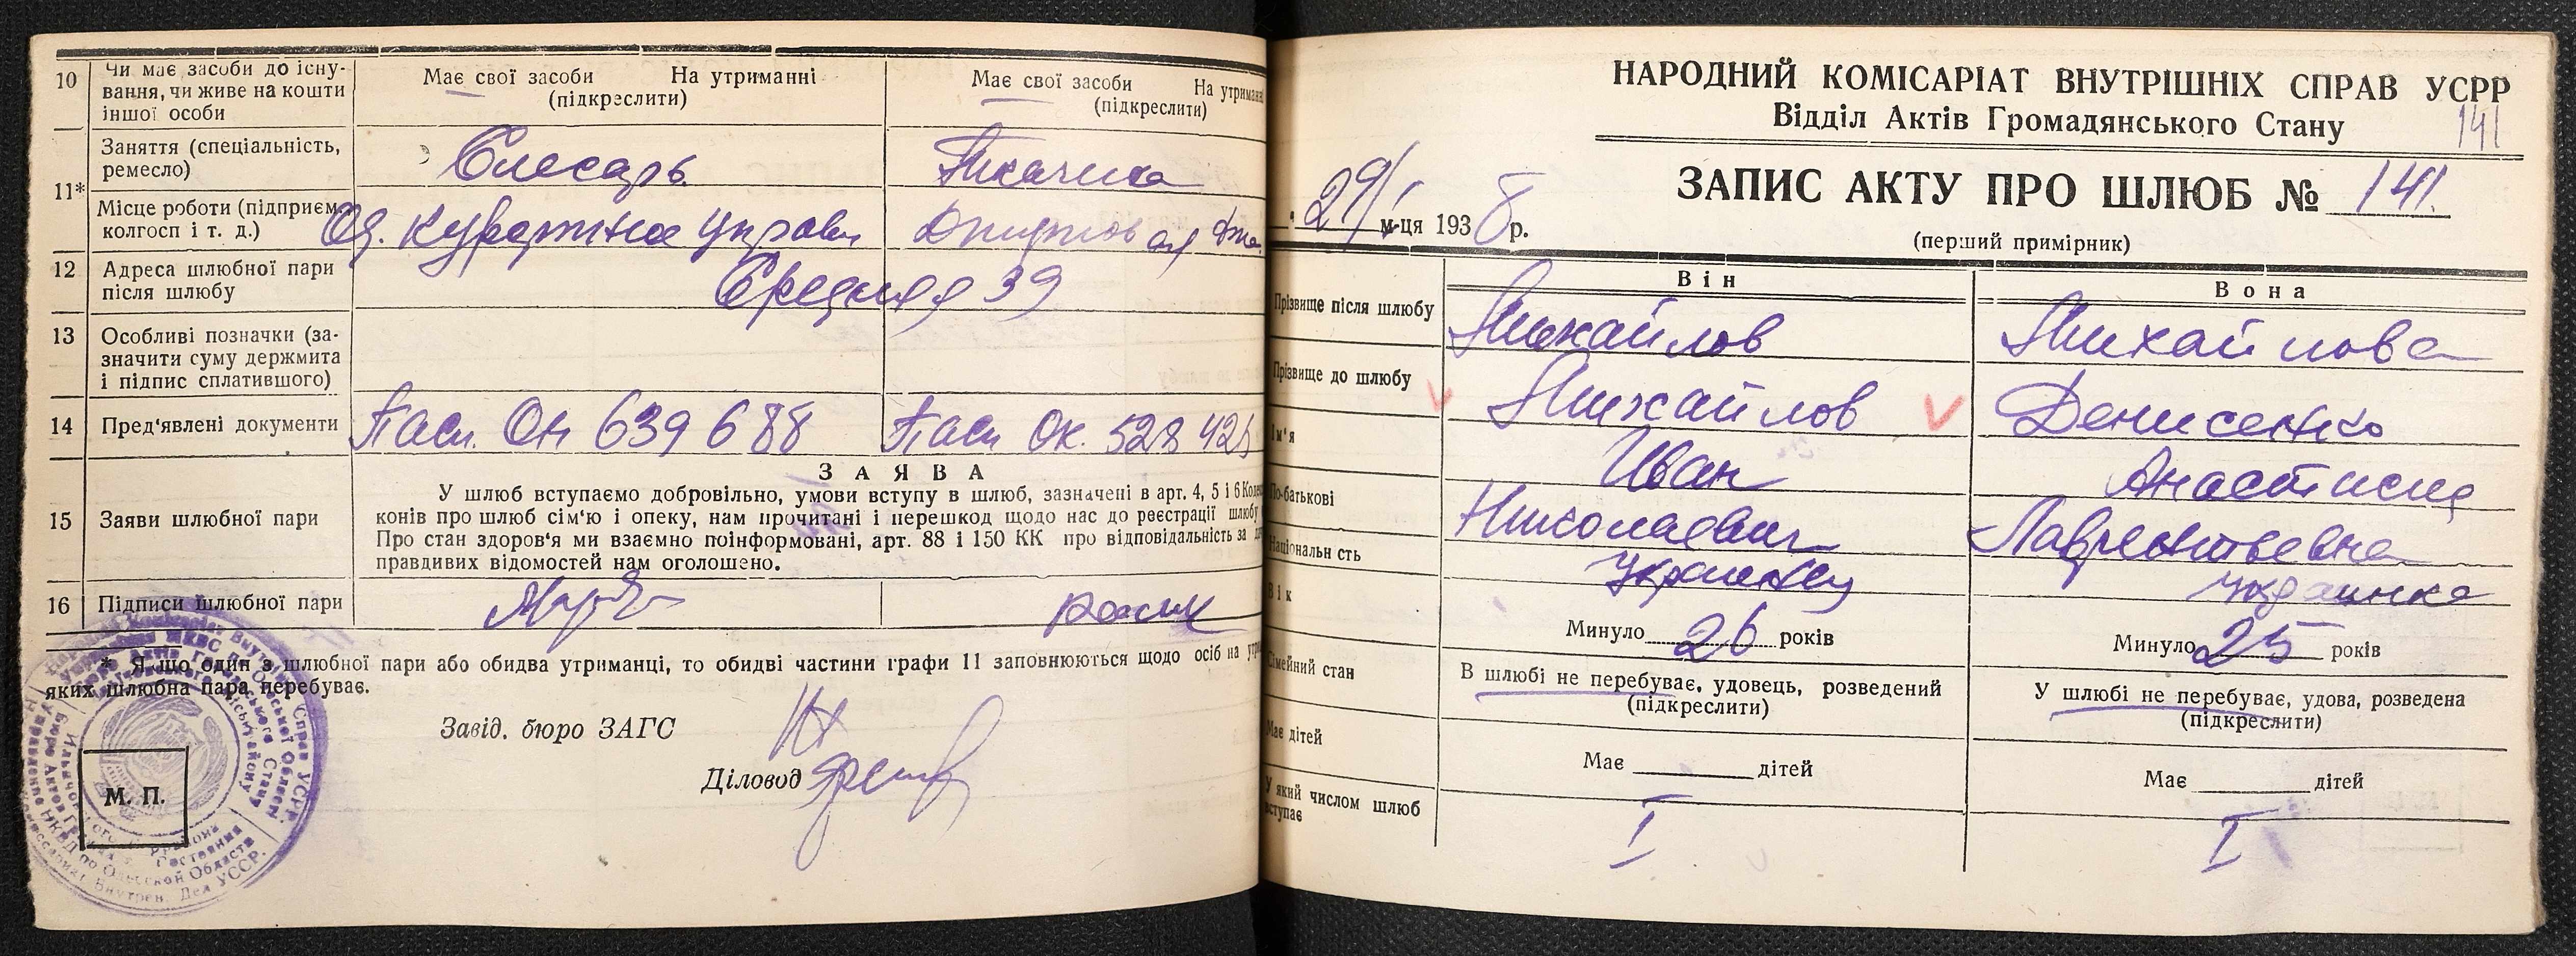 10 Чи має засоби до існу-
вання, чи живе на кошти
іншої особи
Має свої засоби На утриманні
(підкреслити)
Має свої засоби На утриманні
(підкреслити)
11* Заняття (спеціальність,
ремесло)
Слесарь
Ткачиха
Місце роботи (підприєм.
колгосп і т. д.)
Од. Курортное Управ
Джутовая
12 Адреса шлюбної пари
після шлюбу
Средняя 39
13 Особливі позначки (за-
значити суму держмита
і підпис сплатившого)
14 Пред'явлені документи
Пасп. Он 639688
Пасп Ок. 528 425
ЗАЯВА
15 Заяви шлюбної пари
У шлюб вступаємо добровільно, умови вступу в шлюб, зазначені в арт. 4, 5 і 6
конів про шлюб сім'ю і опеку, нам прочитані і перешкод щодо нас до реєстрації шлюбу
Про стан здоров'я ми взаємно поінформовані, арт. 88 і 150 КК про відповідальність за
правдивих відомостей нам оголошено.
16 Підписи шлюбної пари
* Якщо один з шлюбної пари або обидва утриманці, то обидві частини графи 11 заповнюються щодо осіб на
яких шлюбна пара перебуває.
Завід. бюро ЗАГС
Діловод
М. П.
НАРОДНИЙ КОМІСАРІАТ ВНУТРІШНІХ СПРАВ УСРР
Відділ Актів Громадянського Стану
141
ЗАПИС АКТУ ПРО ШЛЮБ № 141.
29/I м-ця 1938 р.
(перший примірник)
Він
Вона
Прізвище після шлюбу
Михайлов
Михайлова
Прізвище до шлюбу
Михайлов
Денисенко
Ім'я
Иван
Анастасия
По-батькові
Николаевич
Лаврентьевна
Національність
Украинец
Украинка
Вік
Минуло 26 років
Минуло 25 років
Сімейний стан
В шлюбі не перебуває, удовець, розведений
(підкреслити)
У шлюбі не перебуває, удова, розведена
(підкреслити)
Має дітей
Має дітей
Має дітей
У який числом шлюб
вступає
I
I